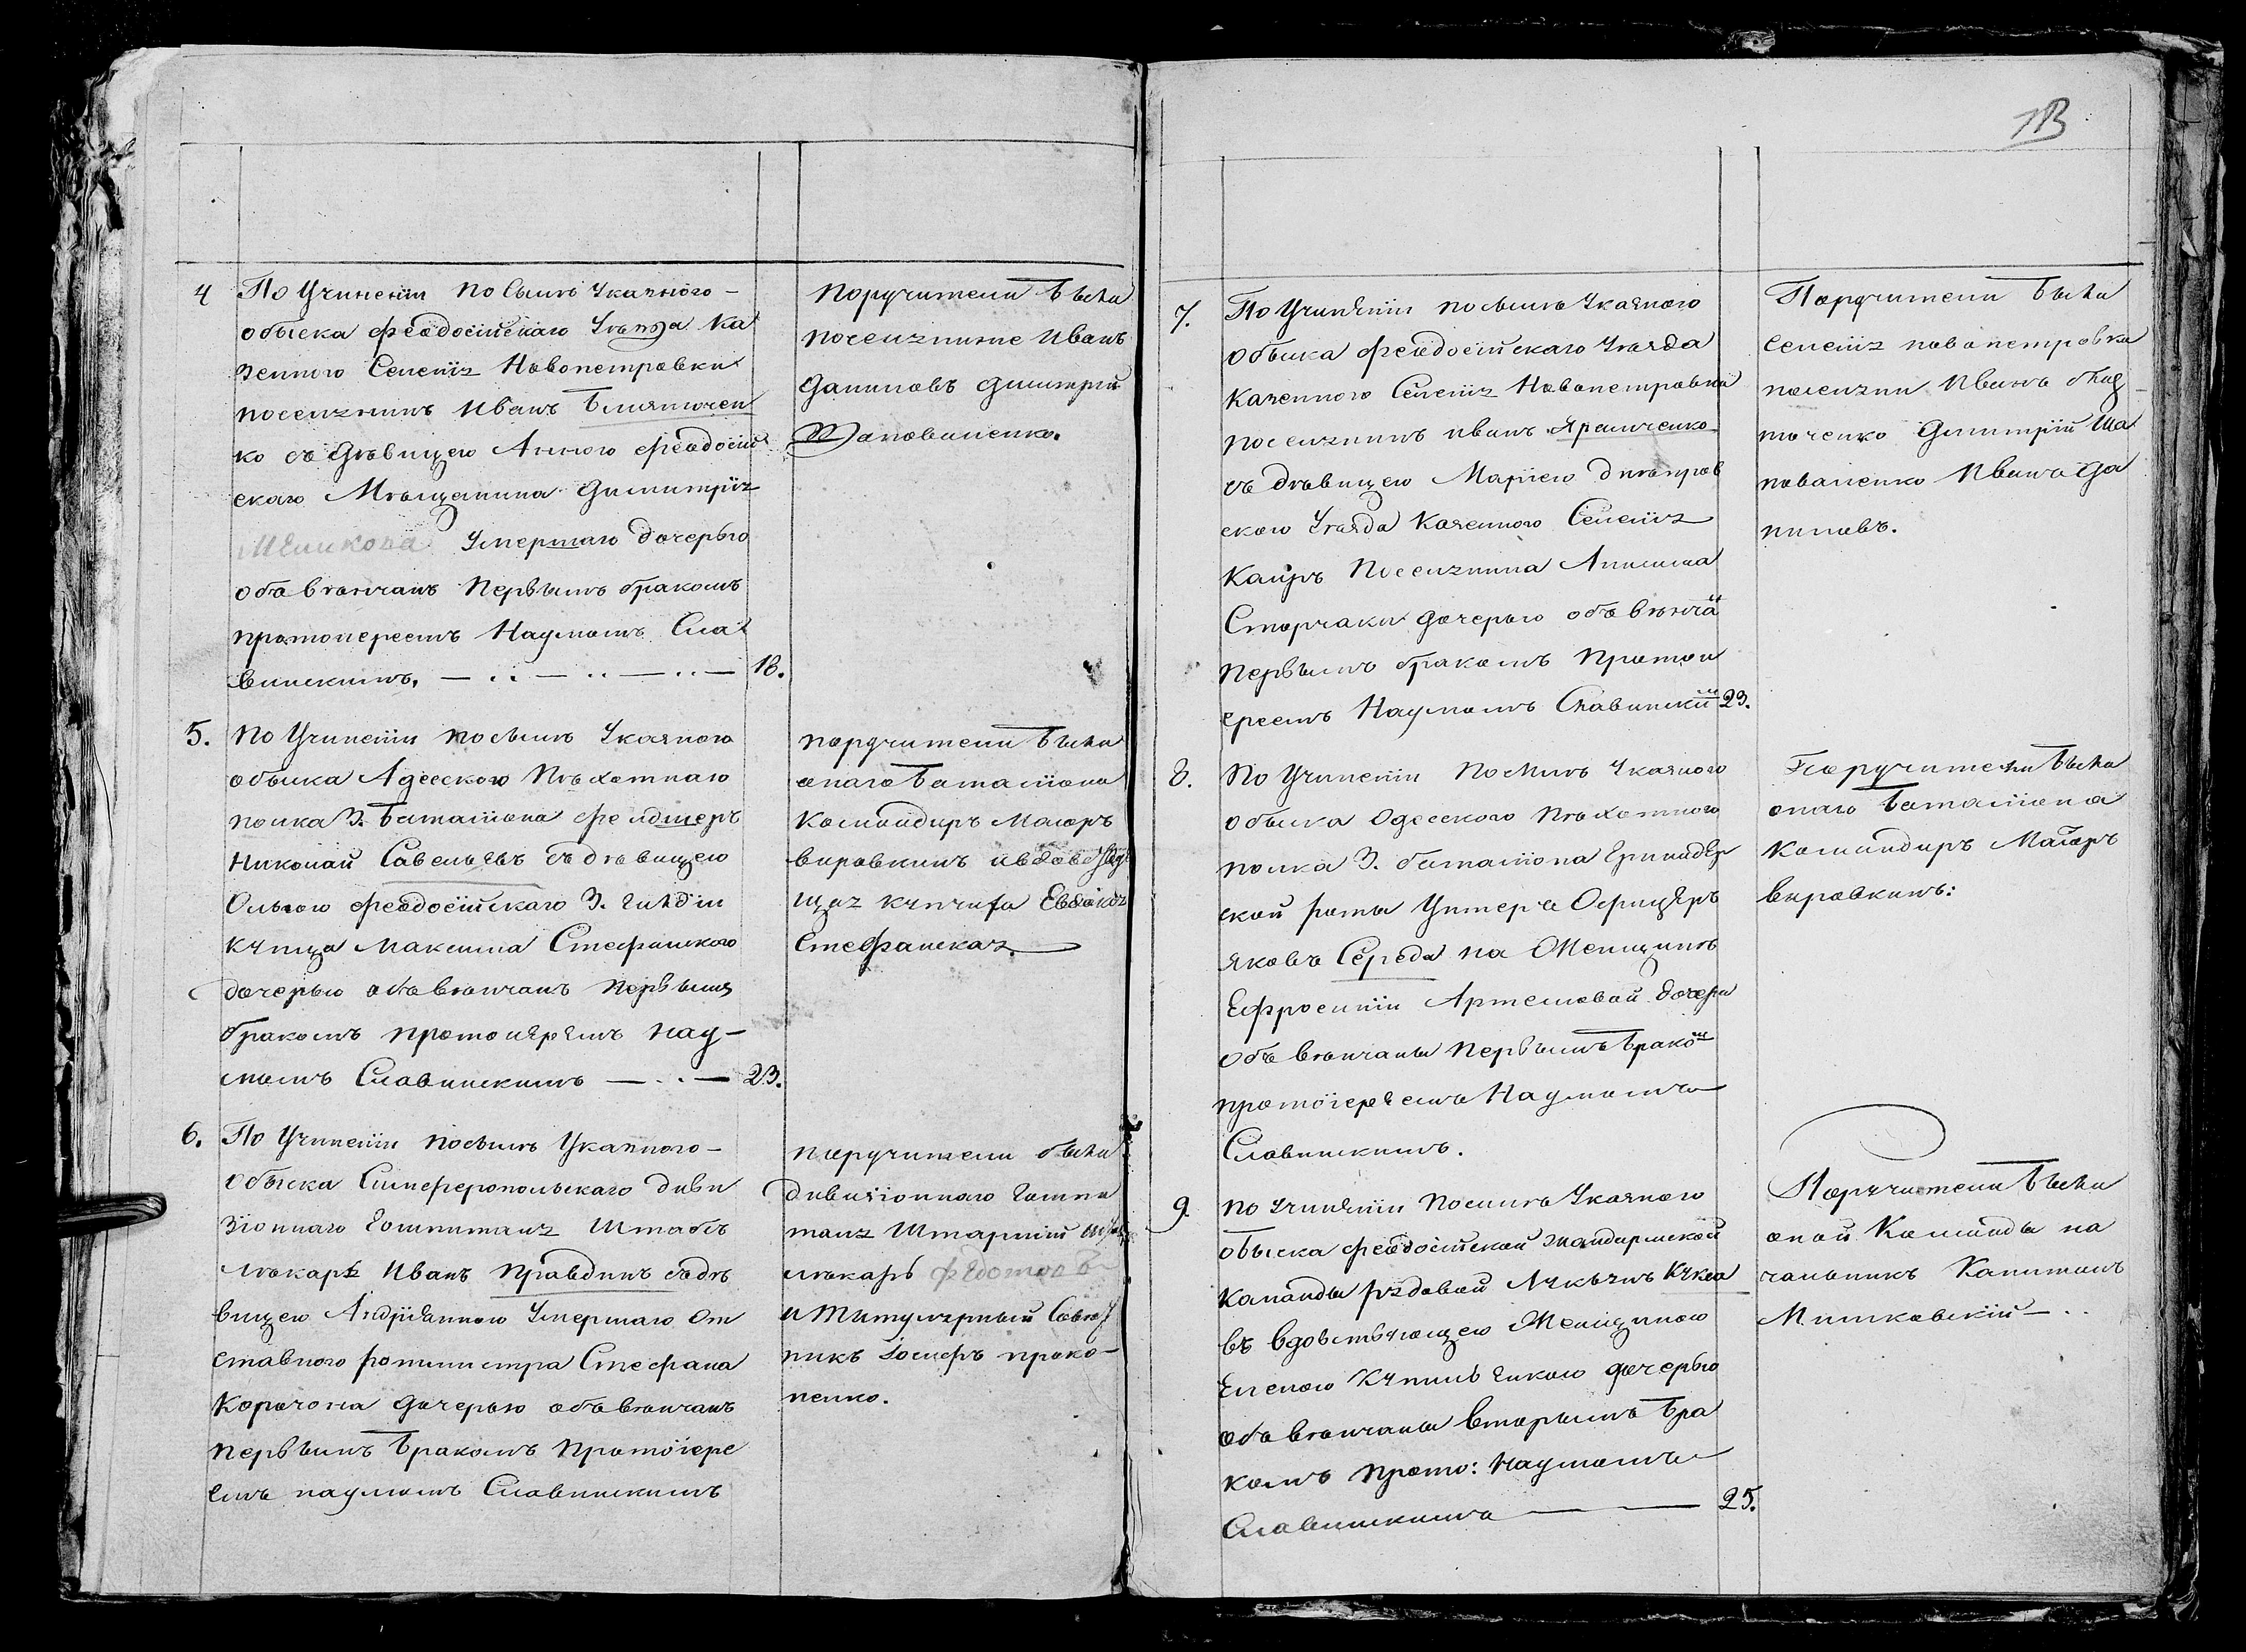 4 По Учиненiи по Сымъ Указного-
обыска феодосiйскаго Уезда Ка
зенного Селенiя Новопетровки
поселянинъ Иванъ Билятичен
ко съ Девицею Анною феодосiй
скаго Мещанина Димитрiя
Меликова Умершаго дочерью
обвенчанъ Первымъ бракомъ
протоиереемъ Наумомъ Сла
винскимъ. 18.
поручители Были
поселяние Иванъ
Даниловъ Димитрiй
Шаповаленко.
5. По Учиненiи по сымъ Указного
обыска Адесского Пехотнаго
полка 3. Баталiона фелдшеръ
Николай Савельевъ съ девицею
Ольгою феодосiйскаго 3. гилдiи
Купца Максима Стефанского
дочерью обвенчанъ Первымъ
бракомъ протоиереемъ Нау-
момъ Славинскимъ 23.
поручители Были
онаго Баталiона
Командиръ Маiоръ
вировкинъ
щая купчиха Евдокiя
Стефанская.
6. По Учиненiи по сымъ Указного-
обыска Симферопольскаго Диви
зiонного Гошпиталя Штабъ
лекаръ Иванъ Правдинъ съ де
вицею Андрiянною Умершаго От
ставного ротмистра Стефана
Корочона дочерью обвенчанъ
Первымъ Бракомъ Протоiере
емъ наумомъ Славинскимъ
поручители были
дивизiонного Гошпи
таля Штаршiй
лекарь Федотовъ
и Титулярный Совет
никъ Iосифъ проко-
пенко.
13
7. По Учиненiи по сымъ Указного
Обыска феодосiйскаго Уезда
Казенного Селенiя Новопетровки
поселянинъ иванъ Яремченко
съ девицею Марiею днепров
ского Уезда Казенного Селенiя
Каиръ Поселянина Анисима
Сторчаки дочерью обвенча
Первымъ бракомъ Протои
ереемъ Наумомъ Славинскимъ 23.
Поручители Были
селенiя новопетровки
поселяни Иванъ биля
тченко Димитрiй Ша
поваленко Иванъ Да
ниловъ.
8. По Учиненiи По Сымъ Указного
обыска Одесского Пехотного
полка 3. баталiона Гринадер
ской роты Унтеръ Офицеръ
Яковъ Середа на Женщине
Ефросинiи Артемовой дочери
Обвенчаны Первымъ Бракомъ
протоiереемъ Наумомъ
Славинскимъ.
Поручители Были
онаго Баталiона
Командиръ Маiоръ
вировкинъ:
9. По Учиненiи По симъ Указного
обыска феодосiйской жандармской
Команды рядовой Лукьянъ
въ вдовствующею Женщиною
Еленою дочерью
обвенчаны Вторымъ Бра
комъ Прото: Наумомъ
Славинскимъ 25.
Поручители Были
оной Команды на
чальникъ Капитанъ
Мишковскiй